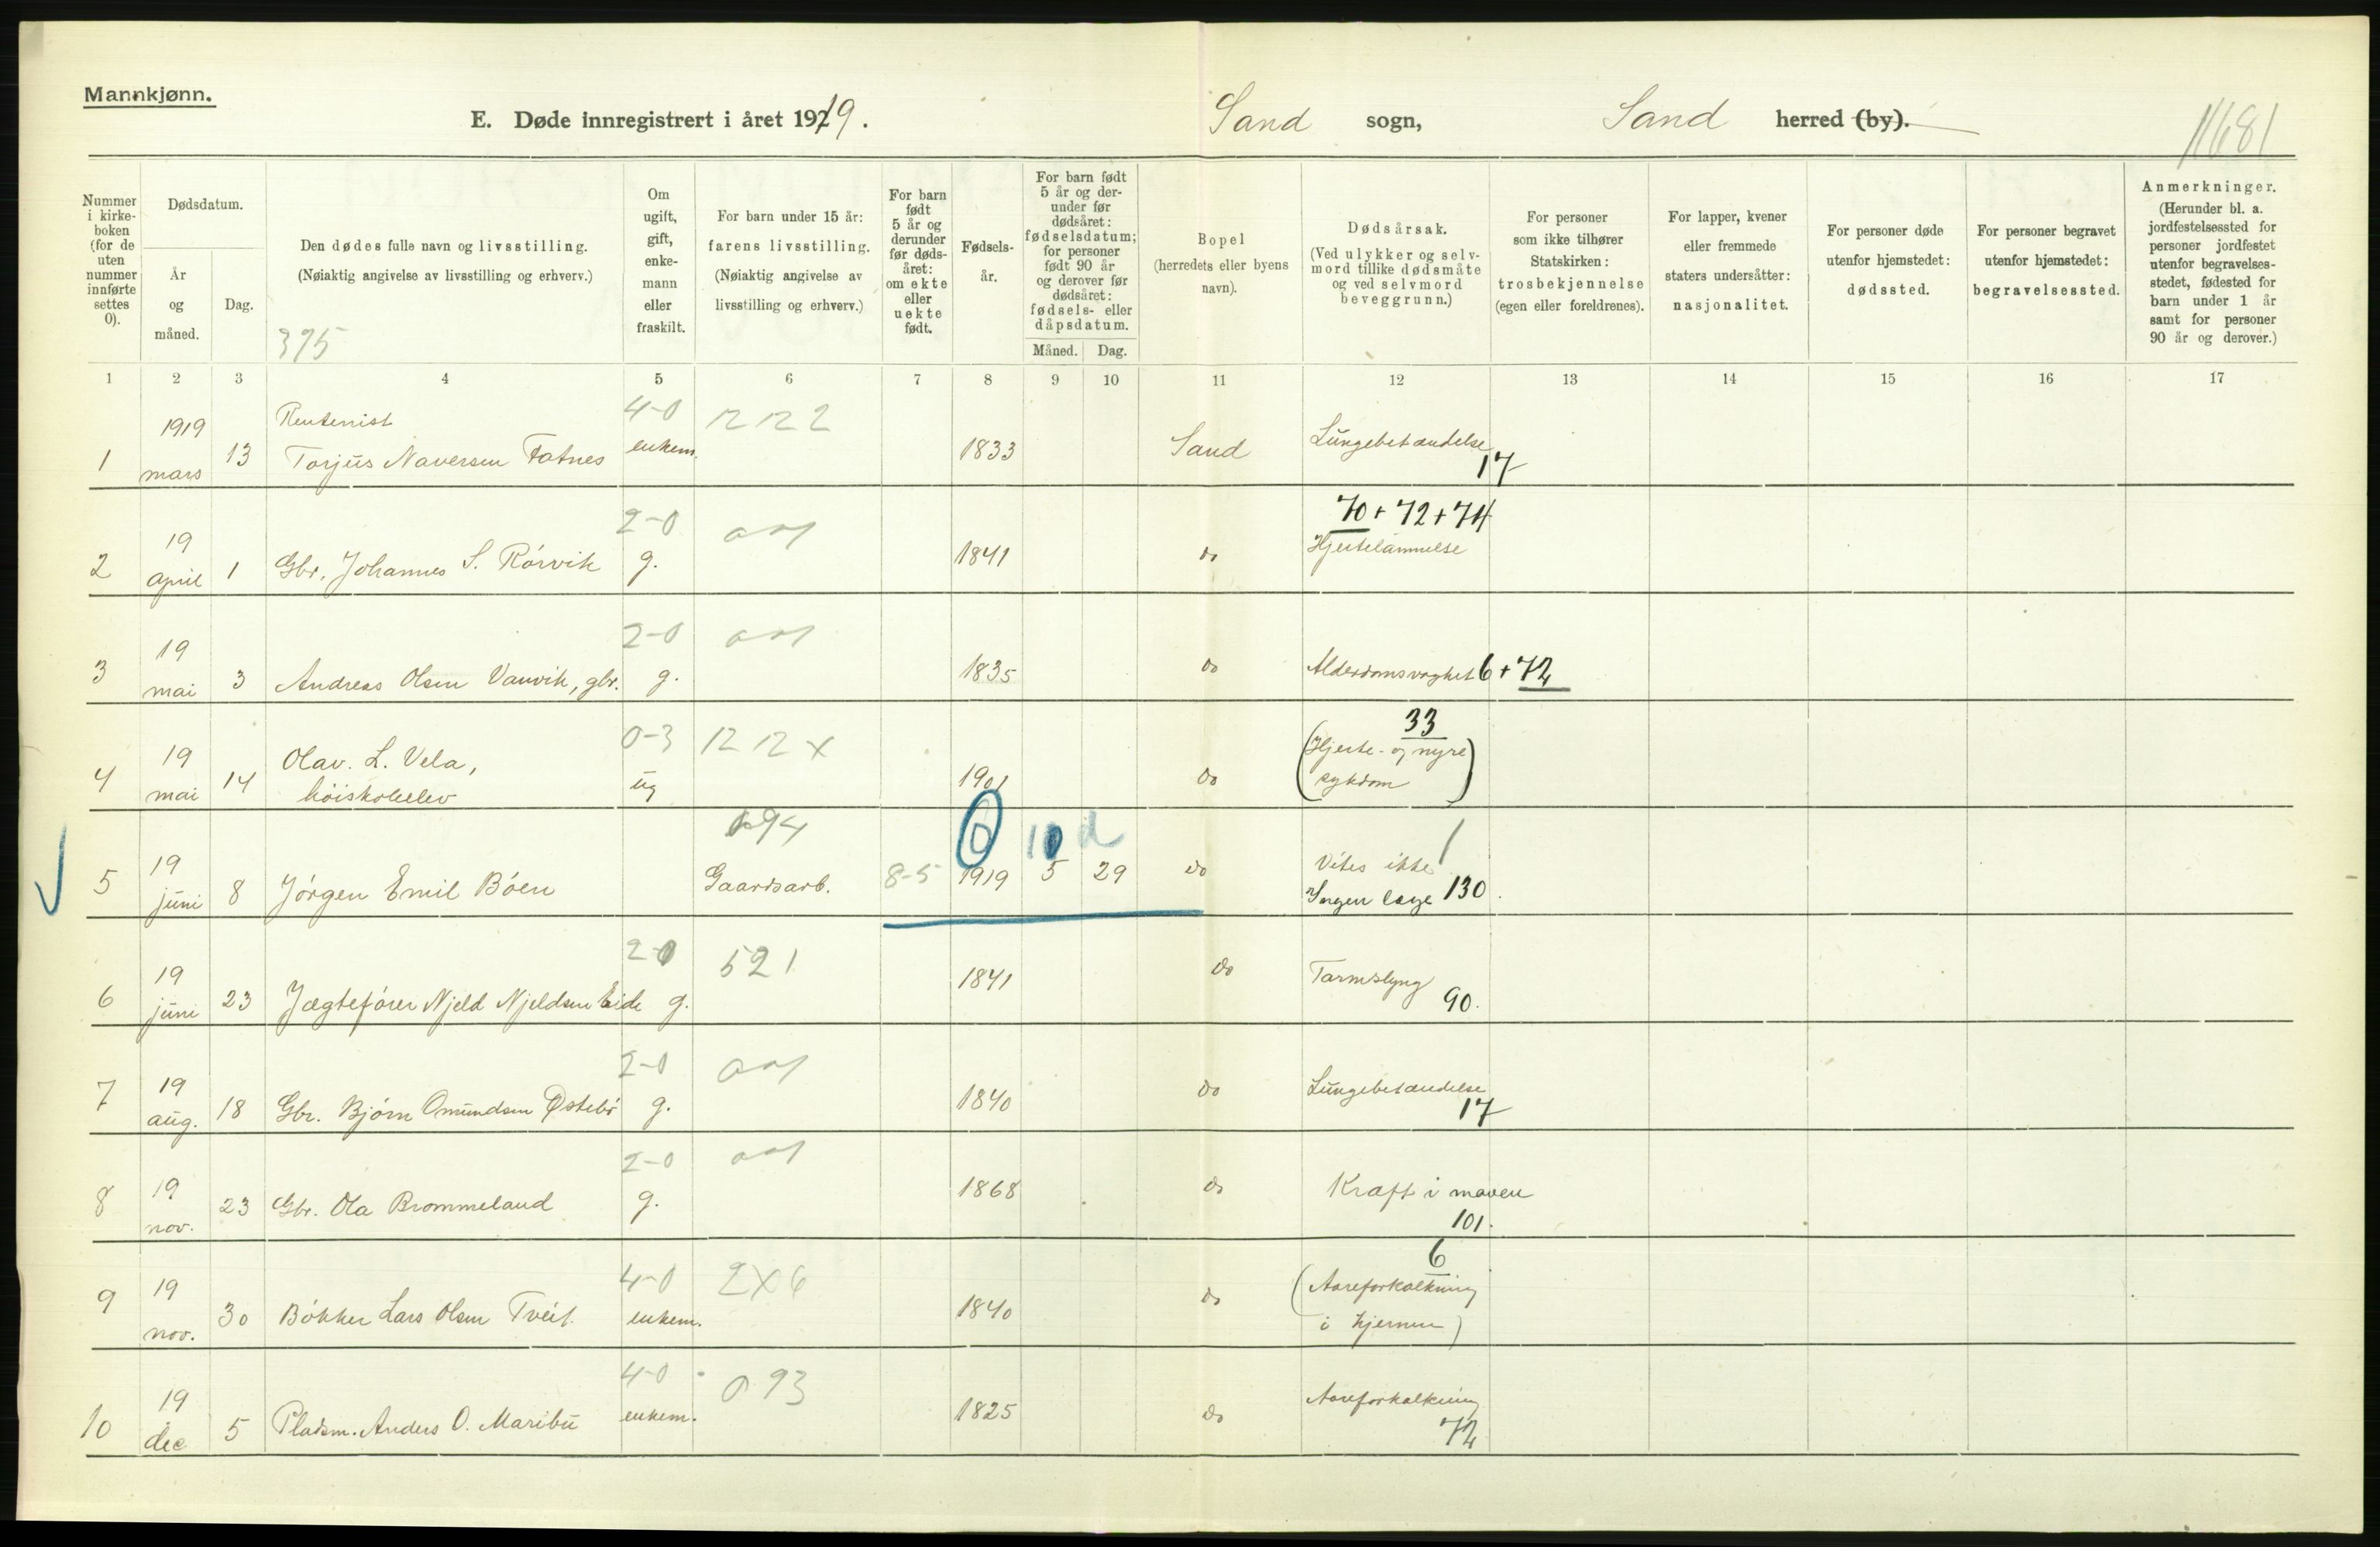 Mannkjønn.
E. Døde innregistrert i året 1919.
Sand sogn, Sand herred (by).
11681
Nummer i kirke-boken (for de uten nummer innførte settes 0).
Dødsdatum.
År og måned.
Dag.
Den dødes fulle navn og livsstilling.
(Nøiaktig angivelse av livsstilling og erhverv.)
375
Om ugift, gift, enke-mann eller fraskilt.
For barn under 15 år: farens livsstilling.
(Nøiaktig angivelse av livsstilling og erhverv.)
For barn født 5 år og derunder før døds-året: om ekte eller uekte født.
Fødsels-år.
For barn født 5 år og der-under før dødsåret: fødselsdatum; for personer født 90 år og derover før dødsåret: fødsels- eller dåpsdatum.
Måned. Dag.
Bopel (herredets eller byens navn).
Dødsårsak.
(Ved ulykker og selv-mord tillike dødsmåte og ved selvmord beveggrunn.)
For personer som ikke tilhører Statskirken: trosbekjennelse (egen eller foreldrenes).
For lapper, kvener eller fremmede staters undersåtter: nasjonalitet.
For personer døde utenfor hjemstedet: dødssted.
For personer begravet utenfor hjemstedet: begravelsessted.
Anmerkninger.
(Herunder bl. a. jordfestelsessted for personer jordfestet utenfor begravelses-stedet, fødested for barn under 1 år samt for personer 90 år og derover.)
1 2 3 4 5 6 7 8 9 10 11 12 13 14 15 16 17
1919 Rentenist 4-0 12 12 2
1 mars 13 Torjus Naversen Fatnes enkem. 1833 Sand Lungebetændelse 17
2-0 70 + 72 + 74
2 19 april 1 Gbr. Johannes S. Rórvik g. 1841 do Hjertelammelse
2-0
3 19 mai 3 Andreas Olsen Vanvik, gbr. g. 1835 do Alderdomsvaghet 6 + 72
0-3 12 12 x 33
4 19 mai 14 Olav. L. Vela, høiskoleelev ug 1901 do (Hjerte- og nyre sykdom)
094 0 10 d
5 19 juni 8 Jórgen Emil Bóen Gaardsarb. 8-5 1919 5 29 do Vites ikke / Ingen læge 130.
2-0 521
6 19 juni 23 Jægtefórer Njeld Njeldsen Eide g. 1841 do Tarmslyng 90.
2-0
7 19 aug. 18 Gbr. Bjórn Omundsen Østebó g. 1840 do Lungebetændelse 17
2-0
8 19 nov. 23 Gbr. Ola Brommeland g. 1868 do Kræft i maven 101.
4-0 2x6 6
9 19 nov. 30 Bókker Lars Olsen Tveit enkem. 1840 do (Aareforkalkning i hjernen)
4-0 093
10 19 dec 5 Pladsm. Anders O. Maribu enkem. 1825 do Aareforkalkning 72